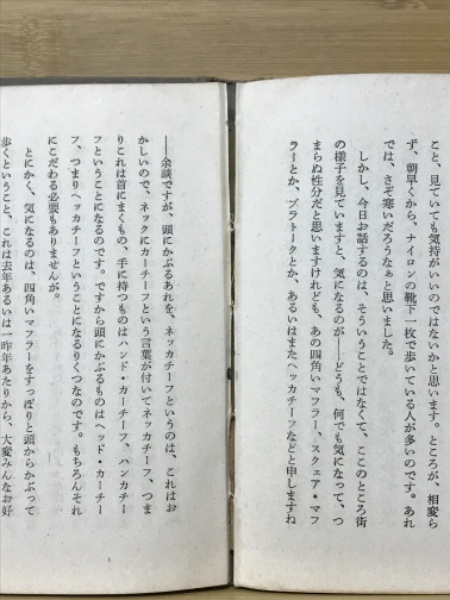 こと、見ていても気持がいいのではないかと思います。ところが、相変ら
ず、朝早くから、ナイロンの靴下一枚で歩いている人が多いのです。あれ
では、さぞ寒いだろうなぁと思いました。
しかし、今日お話するのは、そういうことではなくて、ここのところ街
の様子を見ていますと、気になるのが――どうも、何でも気になって、つ
まらぬ性分だと思いますけれども、あの四角いマフラー、スクェア・マフ
ラーとか、プラトークとか、あるいはまたヘッカチーフなどと申しますね
――余談ですが、頭にかぶるあれを、ネッカチーフというのは、これはお
かしいので、ネックにカーチーフという言葉が付いてネッカチーフ、つま
りこれは首にまくもの、手に持つものはハンド・カーチーフ、ハンカチー
フということになるのです。ですから頭にかぶるものはヘッド・カーチー
フ、つまりヘッカチーフということになるりくつなのです。もちろんそれ
にこだわる必要もありませんが。
とにかく、気になるのは、四角いマフラーをすっぽりと頭からかぶって
歩くということ、これは去年あるいは一昨年あたりから、大変みんなお好